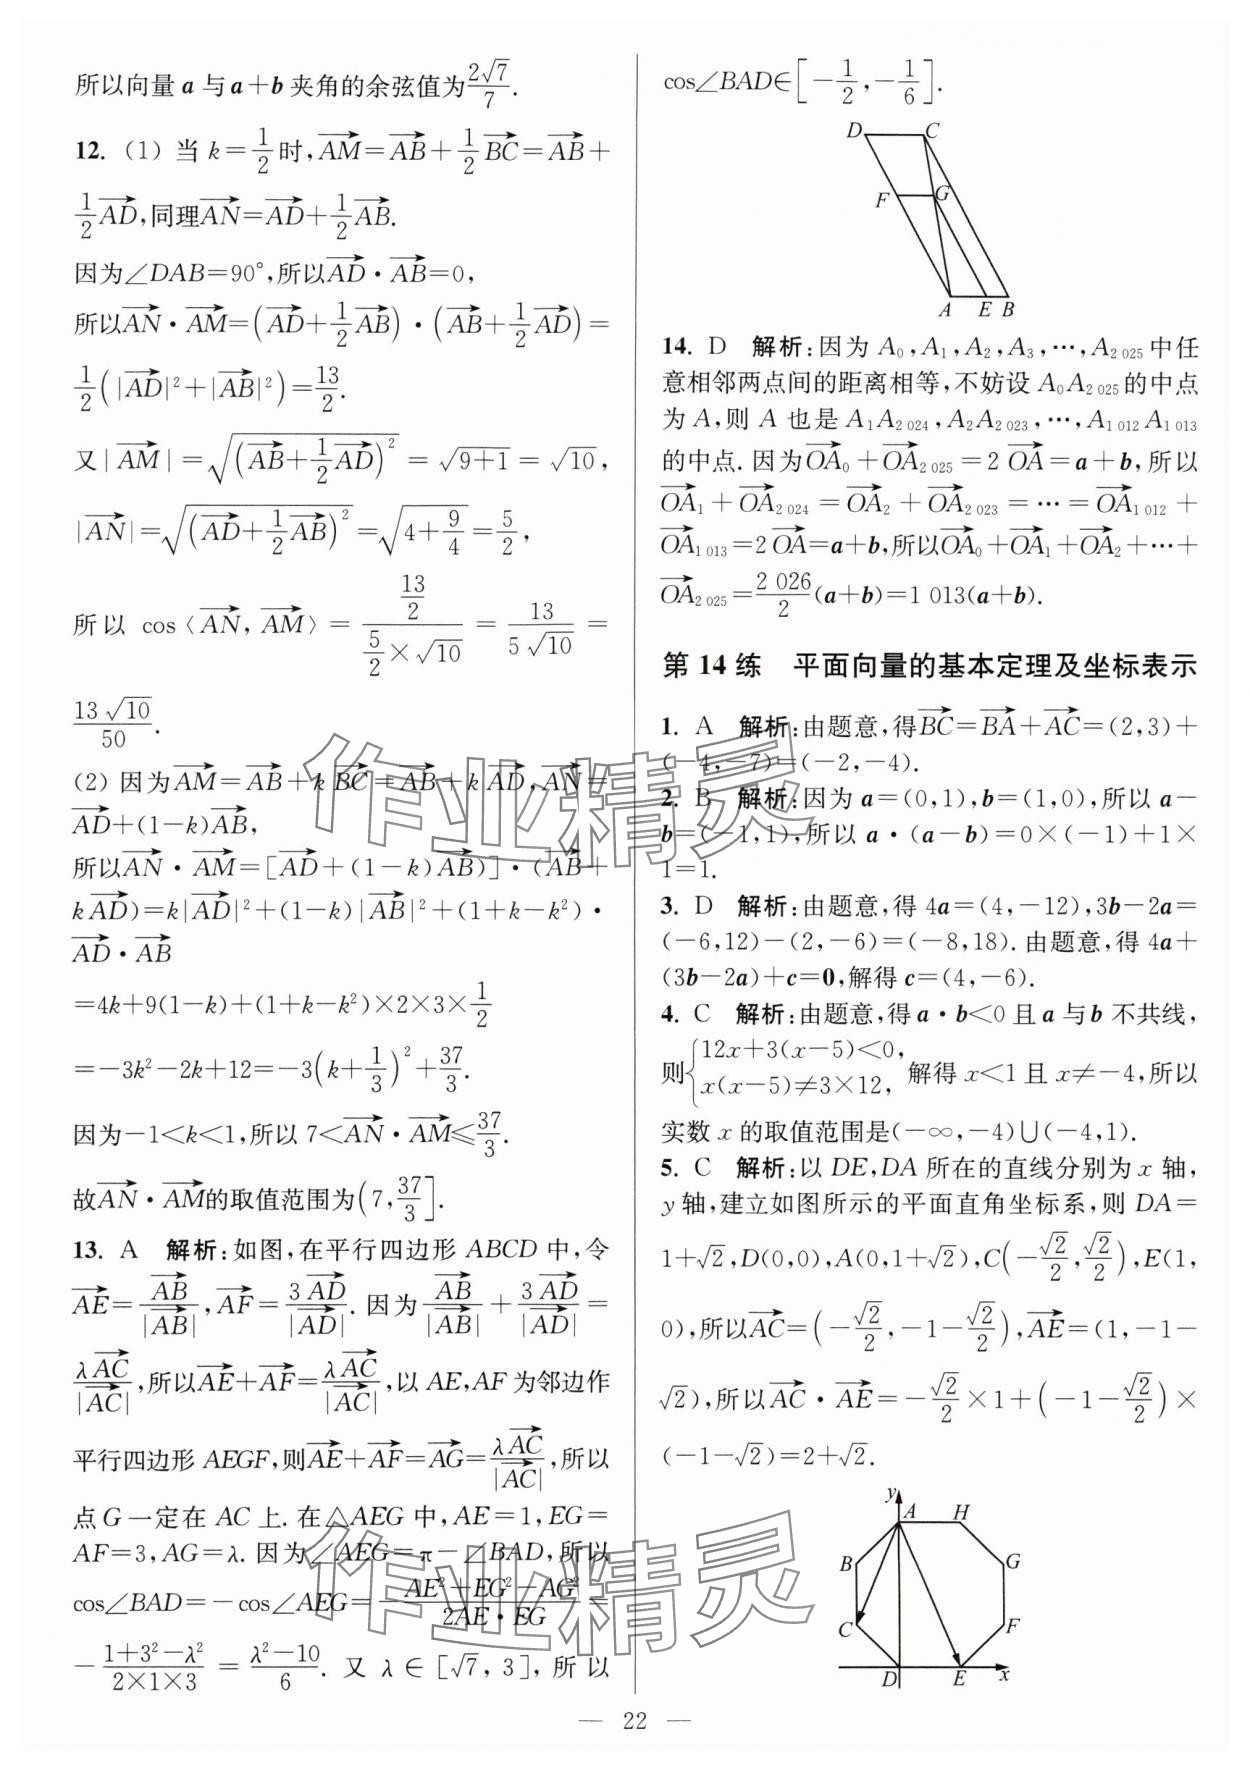 所以向量 a 与 a+b 夹角的余弦值为 2√7/7.
12. (1) 当 k=1/2 时,AM→=AB→+1/2 BC→=AB→+
1/2 AD→,同理AN→=AD→+1/2 AB→.
因为∠DAB=90°,所以AD→·AB→=0,
所以AN→·AM→=(AD→+1/2 AB→)·(AB→+1/2 AD→)=
1/2(|AD→|²+|AB→|²)=13/2.
又|AM→|=√((AB→+1/2 AD→)²)=√(9+1)=√10,
|AN→|=√((AD→+1/2 AB→)²)=√(4+9/4)=5/2,
所以 cos〈AN→,AM→〉=(13/2)/(5/2×√10)=13/(5√10)=
13√10/50.
(2) 因为AM→=AB→+k BC→=AB→+k AD→,AN→=
AD→+(1-k)AB→,
所以AN→·AM→=[AD→+(1-k)AB→)]·(AB→+
k AD→)=k|AD→|²+(1-k)|AB→|²+(1+k-k²)·
AD→·AB→
=4k+9(1-k)+(1+k-k²)×2×3×1/2
=-3k²-2k+12=-3(k+1/3)²+37/3.
因为-1<k<1,所以 7<AN→·AM→≤37/3.
故AN→·AM→的取值范围为(7,37/3].
13. A 解析:如图,在平行四边形 ABCD 中,令
AE→=AB→/|AB→|,AF→=3AD→/|AD→|. 因为AB→/|AB→|+3AD→/|AD→|=
λAC→/|AC→|,所以AE→+AF→=λAC→/|AC→|,以 AE,AF 为邻边作
平行四边形 AEGF,则AE→+AF→=AG→=λAC→/|AC→|,所以
点 G 一定在 AC 上. 在△AEG 中,AE=1,EG=
AF=3,AG=λ. 因为∠AEG=π-∠BAD,所以
cos∠BAD=-cos∠AEG=-(AE²+EG²-AG²)/(2AE·EG)=
-(1+3²-λ²)/(2×1×3)=(λ²-10)/6. 又 λ∈[√7,3],所以
cos∠BAD∈[-1/2,-1/6].
D C
F G
A E B
14. D 解析:因为 A₀,A₁,A₂,A₃,…,A₂ ₀₂₅ 中任
意相邻两点间的距离相等,不妨设 A₀A₂ ₀₂₅ 的中点
为 A,则 A 也是 A₁A₂ ₀₂₄,A₂A₂ ₀₂₃,…,A₁ ₀₁₂A₁ ₀₁₃
的中点. 因为OA₀→+OA₂ ₀₂₅→=2 OA→=a+b,所以
OA₁→+OA₂ ₀₂₄→=OA₂→+OA₂ ₀₂₃→=…=OA₁ ₀₁₂→+
OA₁ ₀₁₃→=2 OA→=a+b,所以OA₀→+OA₁→+OA₂→+…+
OA₂ ₀₂₅→=2 026/2(a+b)=1 013(a+b).
第 14 练 平面向量的基本定理及坐标表示
1. A 解析:由题意,得BC→=BA→+AC→=(2,3)+
(-4,-7)=(-2,-4).
2. B 解析:因为 a=(0,1),b=(1,0),所以 a-
b=(-1,1),所以 a·(a-b)=0×(-1)+1×
1=1.
3. D 解析:由题意,得 4a=(4,-12),3b-2a=
(-6,12)-(2,-6)=(-8,18). 由题意,得 4a+
(3b-2a)+c=0,解得 c=(4,-6).
4. C 解析:由题意,得 a·b<0 且 a 与 b 不共线,
则{12x+3(x-5)<0, x(x-5)≠3×12, 解得 x<1 且 x≠-4,所以
实数 x 的取值范围是(-∞,-4)∪(-4,1).
5. C 解析:以 DE,DA 所在的直线分别为 x 轴,
y 轴,建立如图所示的平面直角坐标系,则 DA=
1+√2,D(0,0),A(0,1+√2),C(-√2/2,√2/2),E(1,
0),所以AC→=(-√2/2,-1-√2/2),AE→=(1,-1-
√2),所以AC→·AE→=-√2/2×1+(-1-√2/2)×
(-1-√2)=2+√2.
y A H
B G
C F
D E x
作业精灵
作业精灵
— 22 —